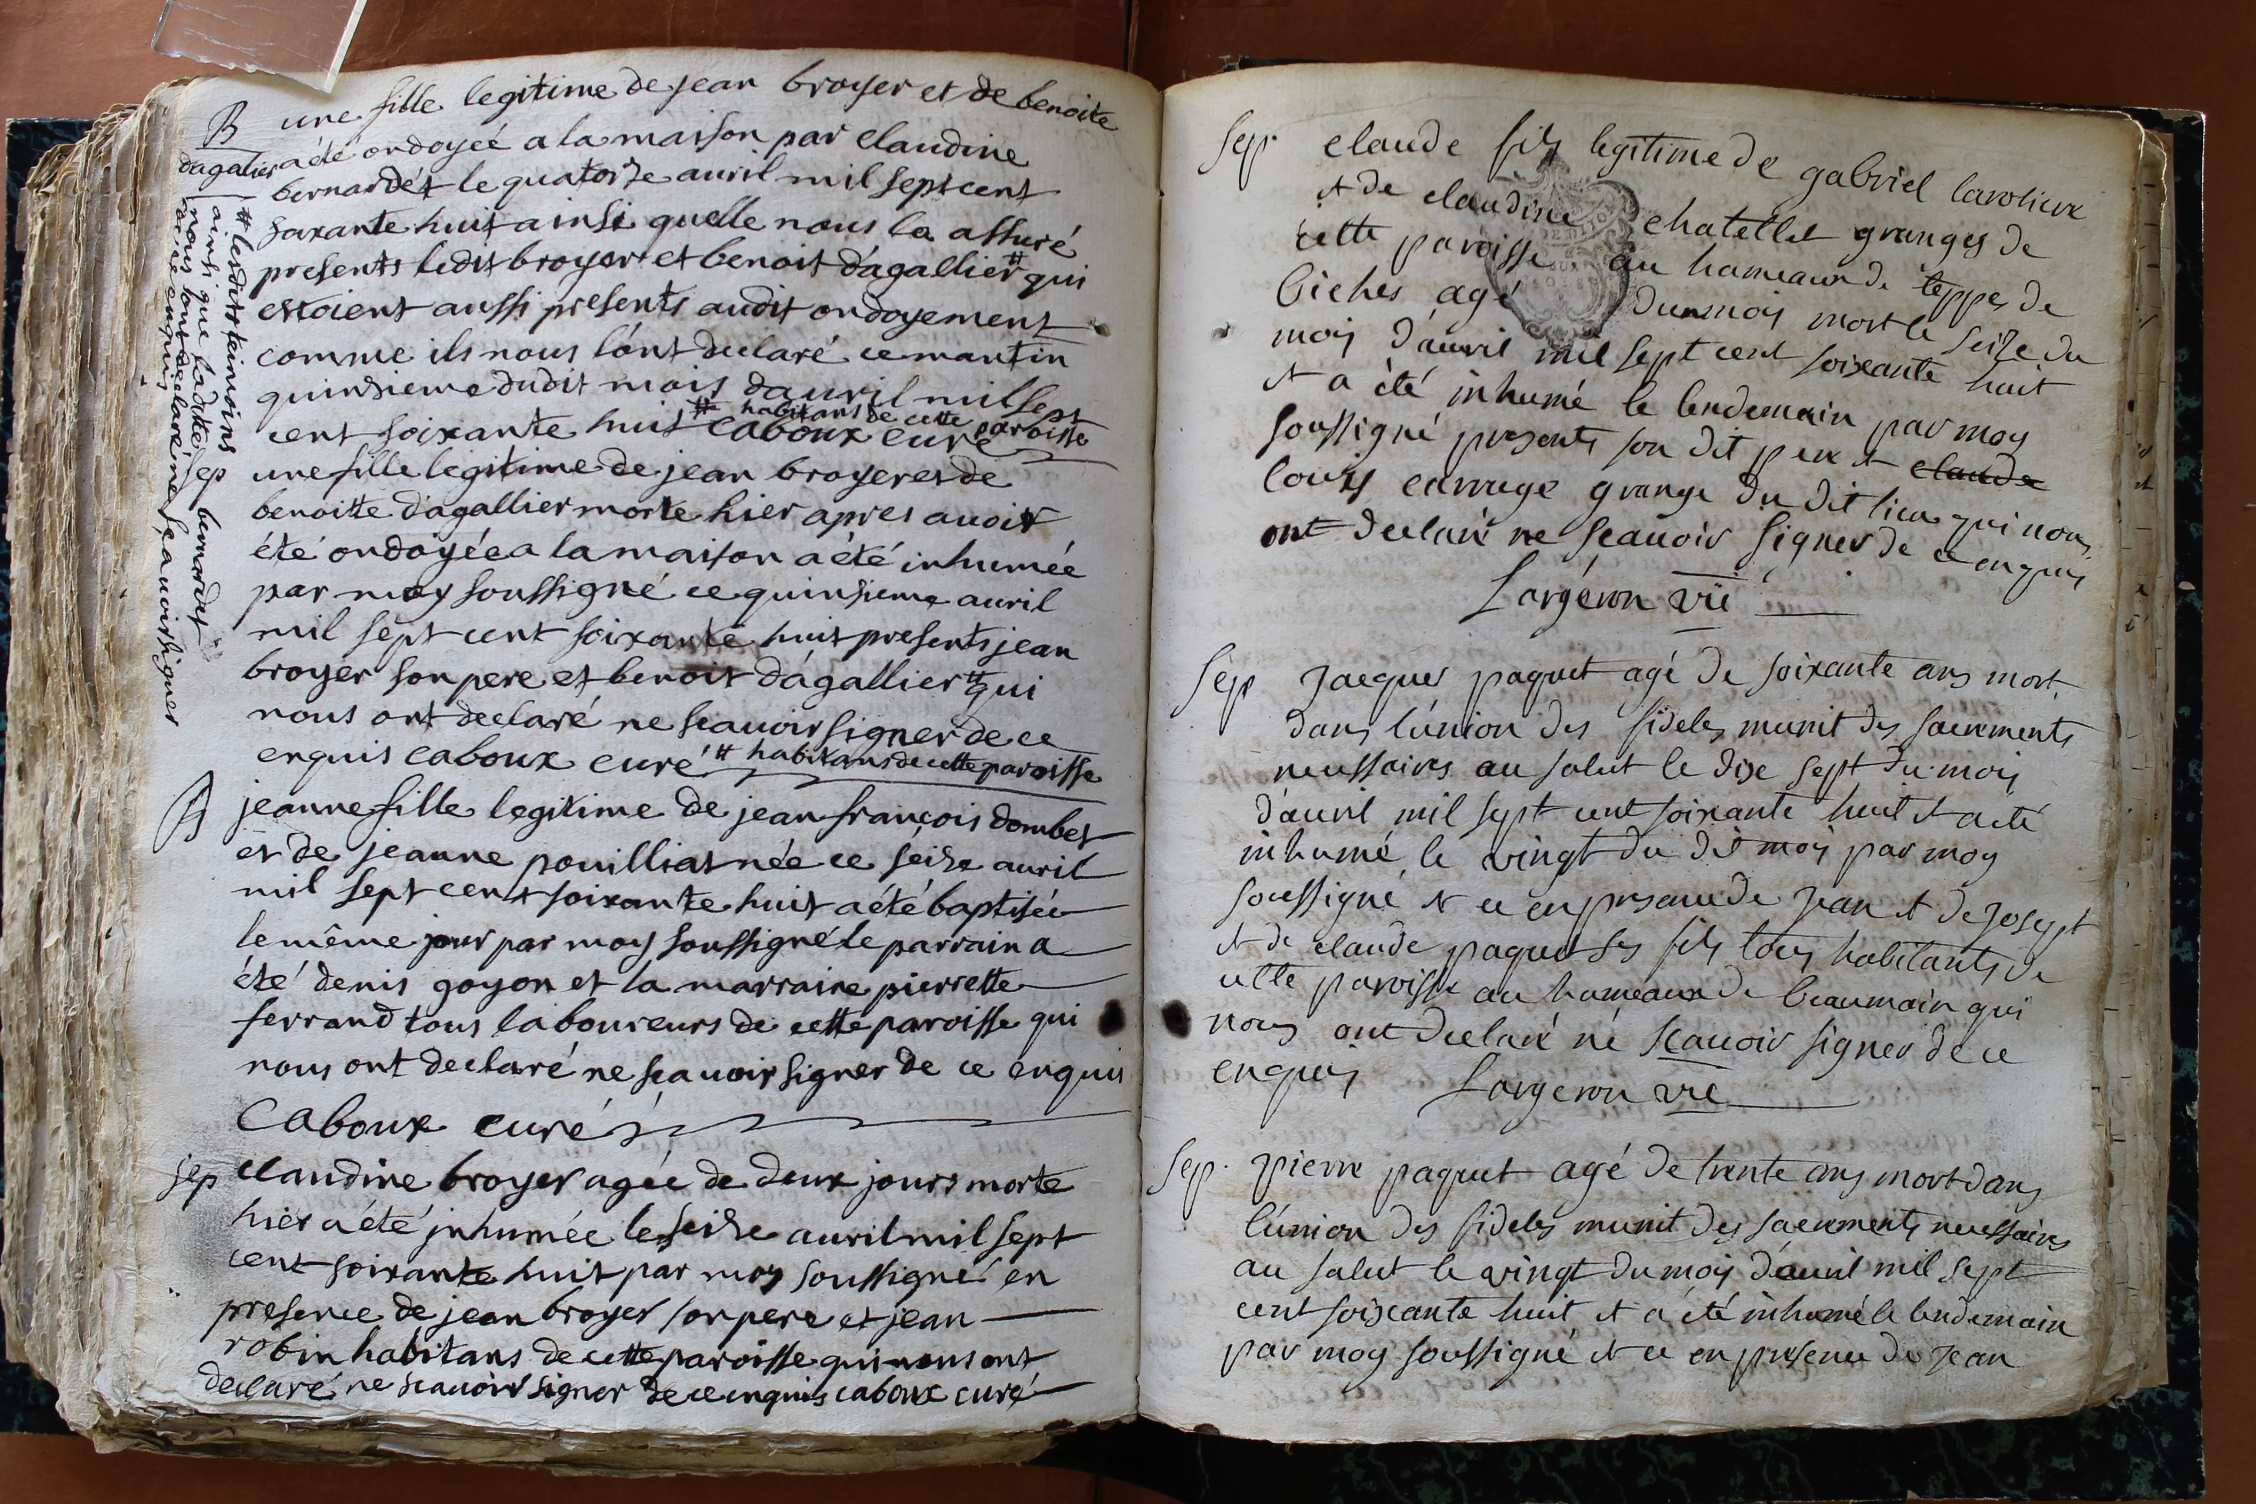 B
une fille legitime de jean broyer et de benoite
dagalier a été ondoyeé a la maison par claudine
bernardet le quatorze auril mil sept cent
soixante huit ainsi quelle nous la assuré
presents ledit broyer et benoit d'agallier # qui
etoient aussi presents audit ondoyement
comme ils nous l'ont declaré ce mantin
quinzieme dudit mois d'auril mil sept
cent soixante huit caboux curé
# habitans de cette paroisse
# lesdits temoins
ainsi que ladite bernardet
nous ont declaré ne sçauoir signer
de ce enquis
Sep
une fille legitime de jean broyer et de
benoitte d'agallier morte hier apres auoir
été ondoyée a la maison a été inhumée
par moy soussigné ce quinsieme auril
mil sept cent soixante huit presents jean
broyer son pere et benoit d'agallier # qui
nous ont declaré ne scauoir signer de ce
enquis caboux curé # habitans de cette paroisse
B
jeanne fille legitime de jean françois dombet
et de jeanne pouilliat née ce seize auril
mil sept cent soixante huit a été baptisée
le même jour par moy soussigné le parrain a
été denis goyon et la marraine pierrette
ferrand tous laboureurs de cette paroisse qui
nous ont declaré ne scauoir signer de ce enquis
Caboux curé
sep
claudine broyer agée de deux jours morte
hier a été jnhumée le seize auril mil sept
cent soixante huit par moy soussigné en
presence de jean broyer son pere et jean
robin habitans de cette paroisse qui nous ont
declaré ne scauoir signer de ce enquis caboux curé
Sep.
claude fils legitime de gabriel
et de claudine chatellet granges de
cette paroisse au hameaux de teppes de
biches agé dun mois mort le seize du
mois d'auril mil sept cent soixante huit
et a été inhumé le lendemain par moy
soussigné presents son dit pere et claude
louis carruge grange du dit lieu qui nous
ont declaré ne scauoir signer de ce enquis
Largeron vic
Sep
Jacques paquet agé de soixante ans mort
dans l'union des fideles munit des sacrements
necessaires au salut le dixe sept du mois
d'auril mil sept cent soixante huit et a eté
inhumé le vingt du dit mois par moy
soussigné et ce en presence de Jean et de Josept
et de claude paquet ses fils tous habitants de
cette paroisse au hameaux de beaumain qui
nous ont declaré né scauoir signer de ce
enquis Largeron vic
Sep.
Pierre paquet agé de trente ans mort dans
l'union des fideles munit des sacrements necessaires
au salut le vingt du mois d'auril mil sept
cent soixante huit et a été inhumé le lendemain
par moy soussigné et ce en presence de Jean